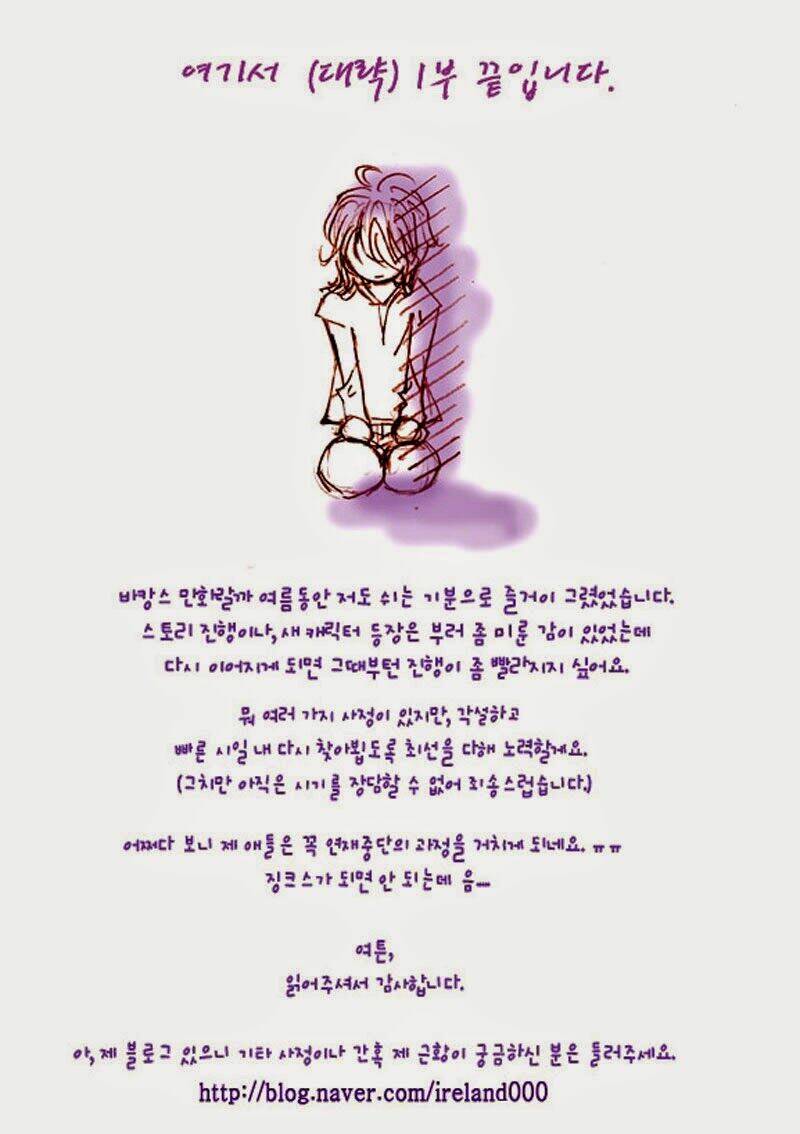 여기서 (대략) 1부 끝입니다.
바캉스 만화랄까 여름동안 저도 쉬는 기분으로 즐거이 그렸었습니다.
스토리 진행이나, 새 캐릭터 등장은 부러 좀 미룬 감이 있었는데
다시 이어지게 되면 그때부턴 진행이 좀 빨라지지 싶어요.
뭐 여러 가지 사정이 있지만, 각설하고
빠른 시일 내 다시 찾아뵙도록 최선을 다해 노력할게요.
(그치만 아직은 시기를 장담할 수 없어 죄송스럽습니다.)
어쩌다 보니 제 애들은 꼭 연재중단의 과정을 거치게 되네요. ㅠㅠ
징크스가 되면 안 되는데 음....
여튼,
읽어주셔서 감사합니다.
아, 제 블로그 있으니 기타 사정이나 간혹 제 근황이 궁금하신 분은 들러주세요.
http://blog.naver.com/ireland000